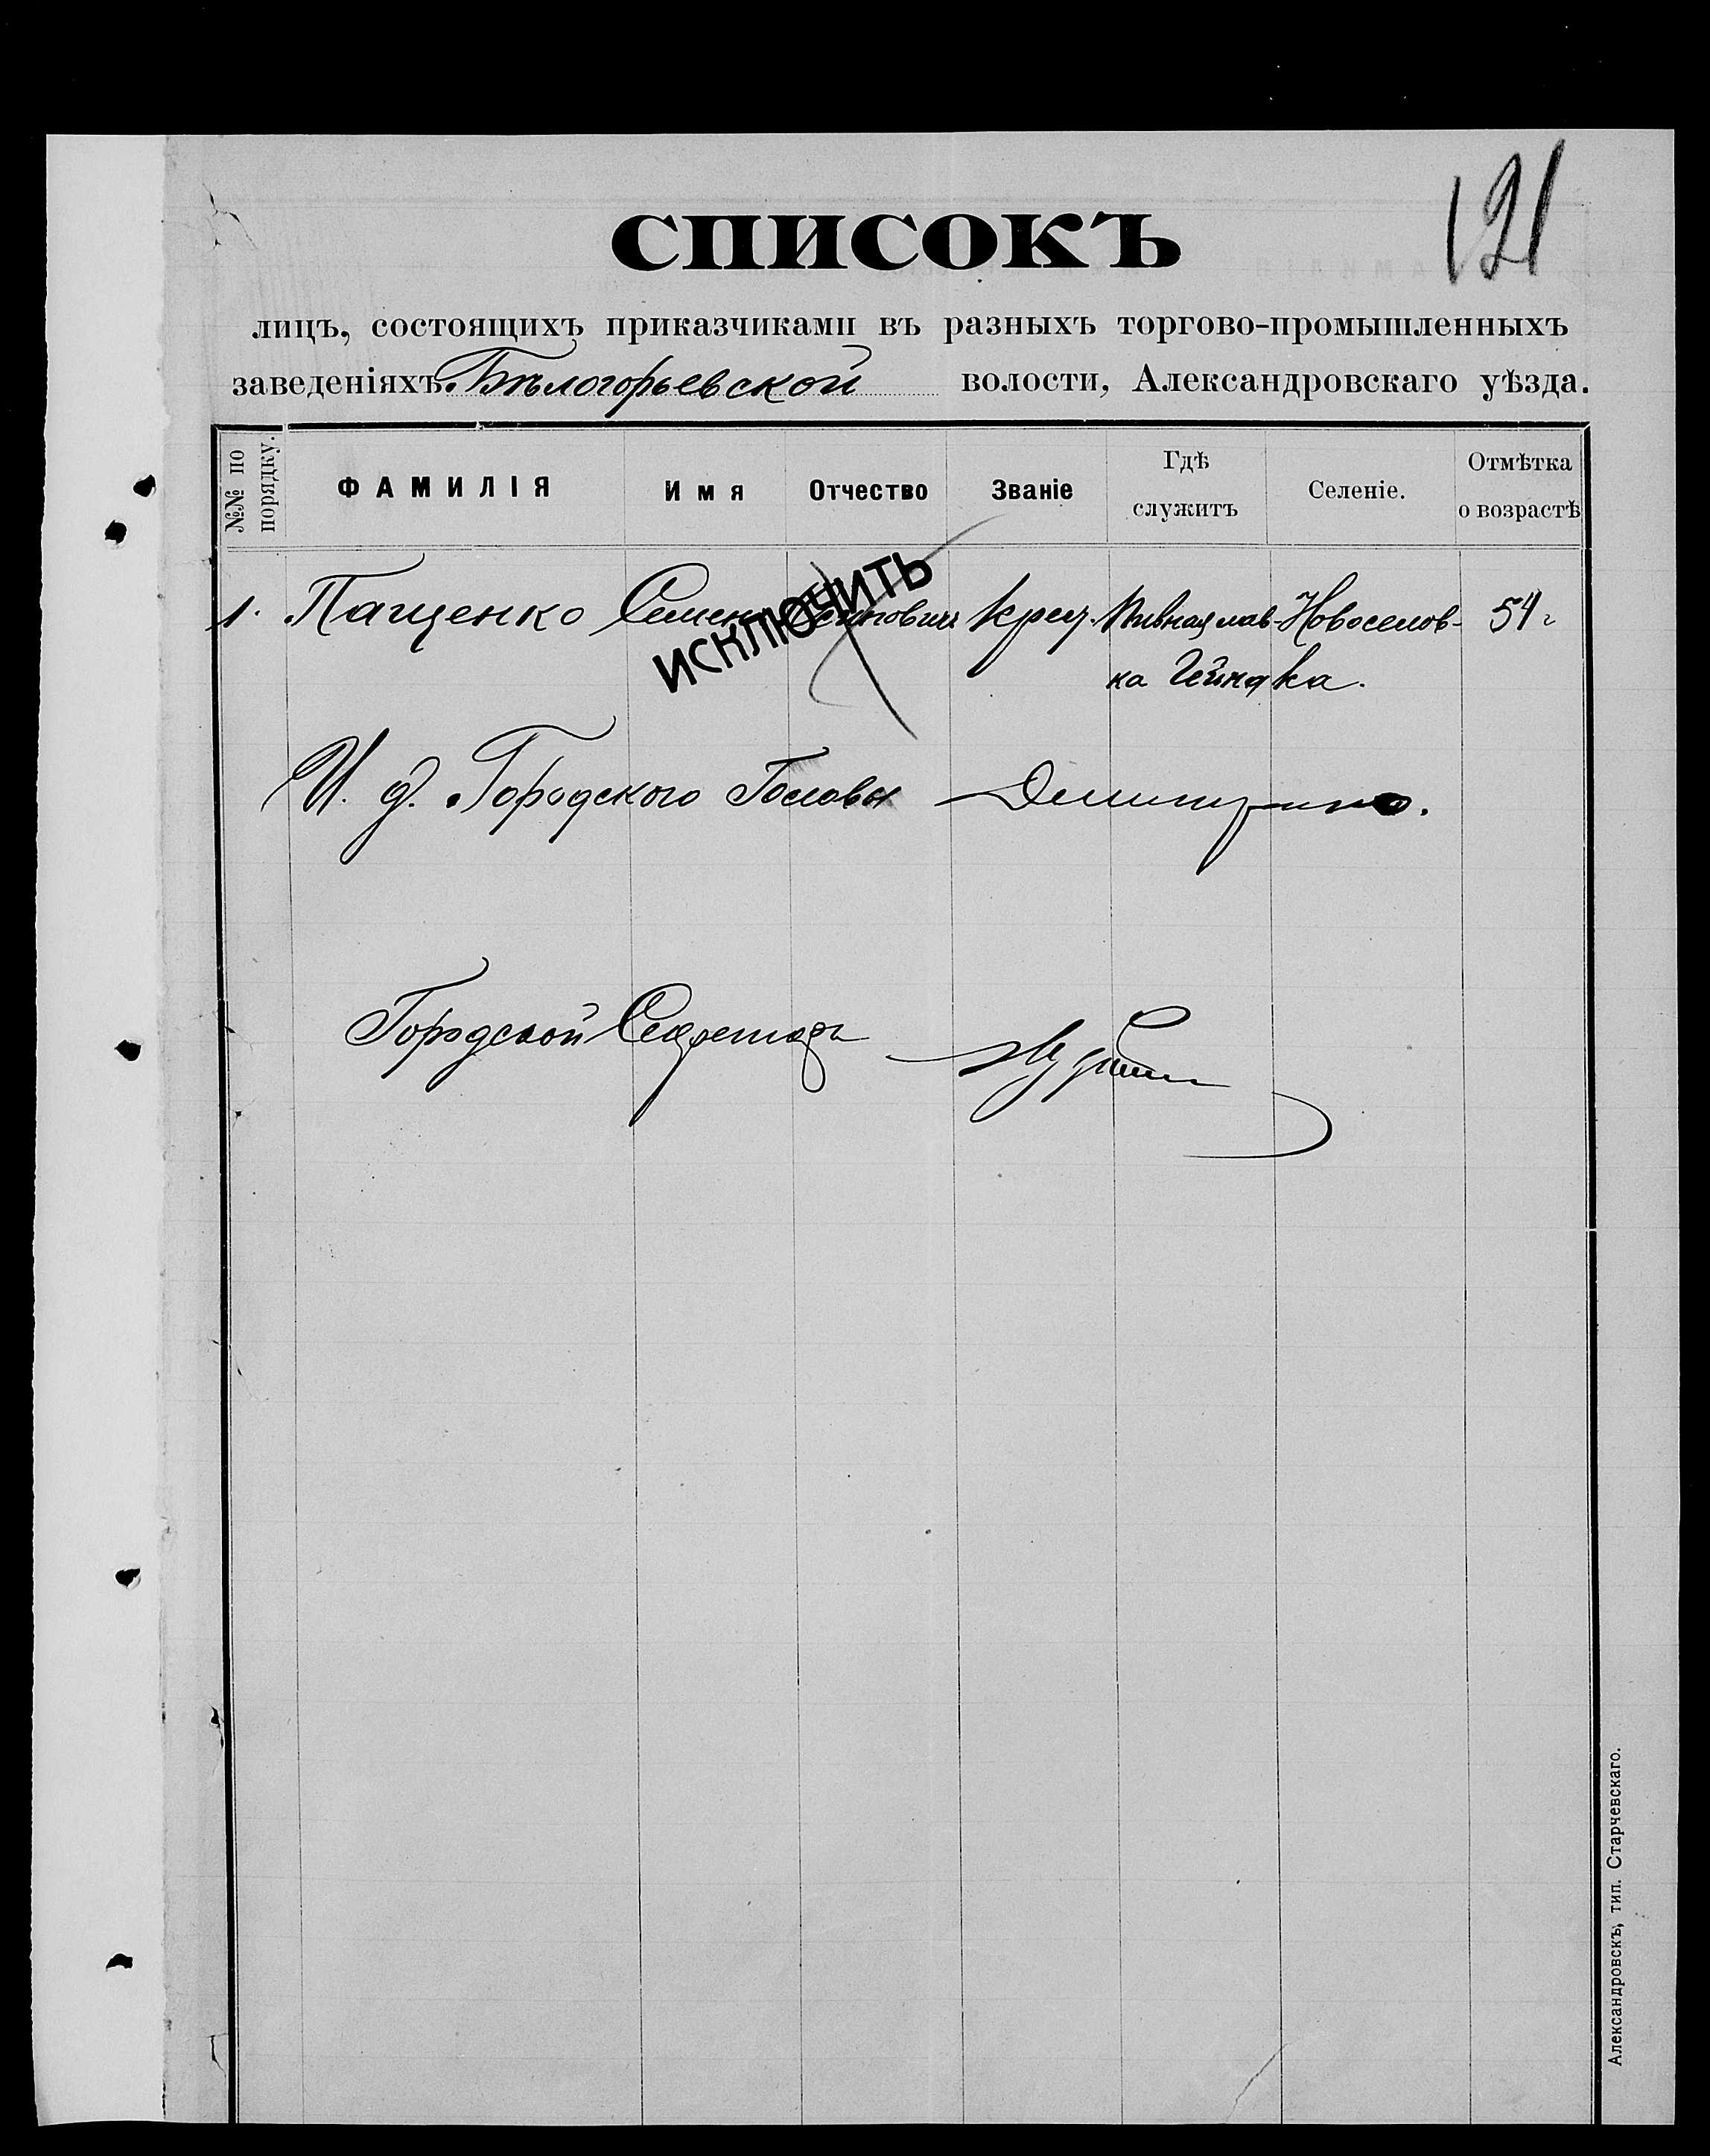 121
СПИСОКЪ
лицъ, состоящихъ приказчиками въ разныхъ торгово-промышленныхъ
заведеніяхъ Бѣлогорьевской волости, Александровскаго уѣзда.
№№ по порядку. ФАМИЛІЯ Имя Отчество Званіе Гдѣ служитъ Селеніе. Отмѣтка о возрастѣ
1. Пащенко Семен Осипович крест. Пивная лав- Новоселов- 54 г
ка ка.
ИСКЛЮЧИТЬ
И. д. Городского Головы
Городской Секретарь
Александровскъ, тип. Старчевскаго.